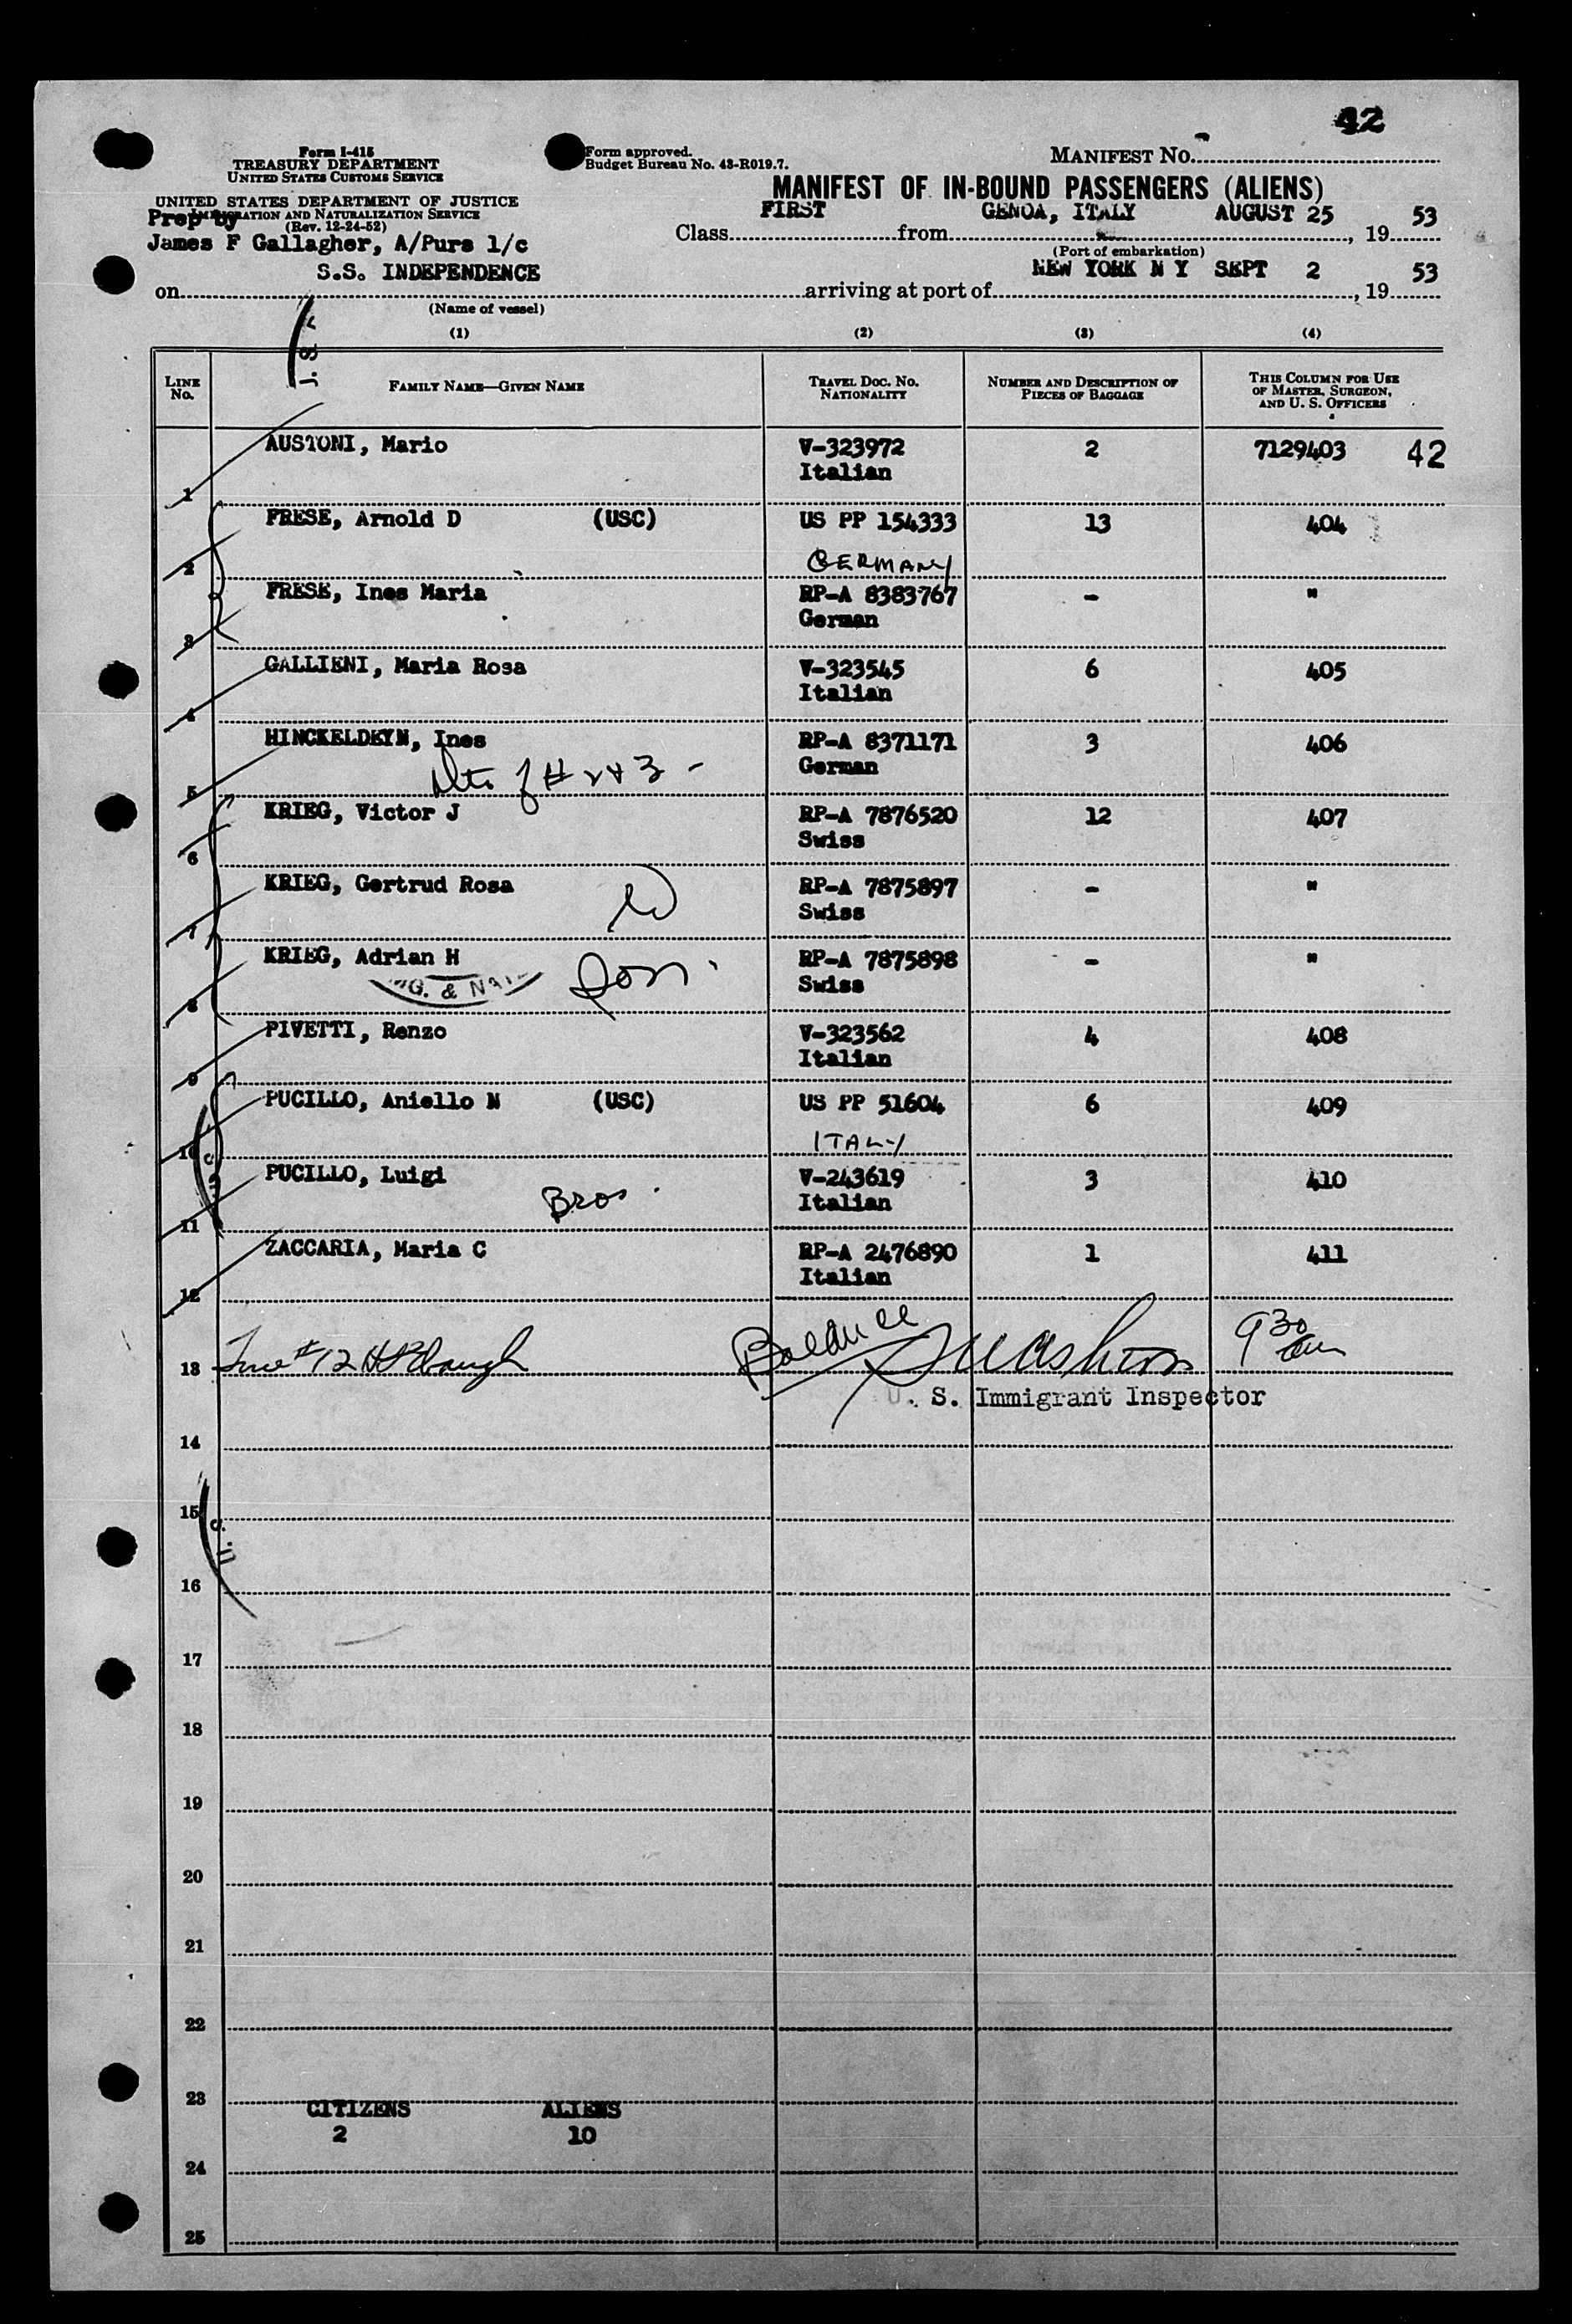 42
Form I-415
TREASURY DEPARTMENT
UNITED STATES CUSTOMS SERVICE
Form approved.
Budget Bureau No. 43-R019.7.
MANIFEST NO.
UNITED STATES DEPARTMENT OF JUSTICE
IMMIGRATION AND NATURALIZATION SERVICE
(Rev. 12-24-52)
Prep by
James F Gallagher, A/Purs 1/c
MANIFEST OF IN-BOUND PASSENGERS (ALIENS)
Class FIRST from GENOA, ITALY AUGUST 25, 19 53
(Port of embarkation)
on S.S. INDEPENDENCE arriving at port of NEW YORK N Y SEPT 2, 19 53
(Name of vessel)
(1) (2) (3) (4)
LINE NO. FAMILY NAME—GIVEN NAME TRAVEL DOC. NO. NATIONALITY NUMBER AND DESCRIPTION OF PIECES OF BAGGAGE THIS COLUMN FOR USE OF MASTER, SURGEON, AND U. S. OFFICERS
AUSTONI, Mario V-323972 2 7129403 42
1 Italian
FRESE, Arnold D (USC) US PP 154333 13 404
2 GERMANY
FRESE, Ines Maria RP-A 8383767 - "
3 German
GALLIENI, Maria Rosa V-323545 6 405
4 Italian
HINCKELDEYN, Ines RP-A 8371171 3 406
5 of # 2 & 3 - German
KRIEG, Victor J RP-A 7876520 12 407
6 Swiss
KRIEG, Gertrud Rosa RP-A 7875897 - "
7 Swiss
KRIEG, Adrian H RP-A 7875898 - "
8 Son Swiss
PIVETTI, Renzo V-323562 4 408
9 Italian
PUCILLO, Aniello N (USC) US PP 51604 6 409
10 ITALY
PUCILLO, Luigi V-243619 3 410
11 Bros. Italian
ZACCARIA, Maria C RP-A 2476890 1 411
12 Italian
13 # 12 9 30 am
U. S. Immigrant Inspector
14
15
U. S.
16
17
18
19
20
21
22
23
CITIZENS ALIENS
2 10
24
25